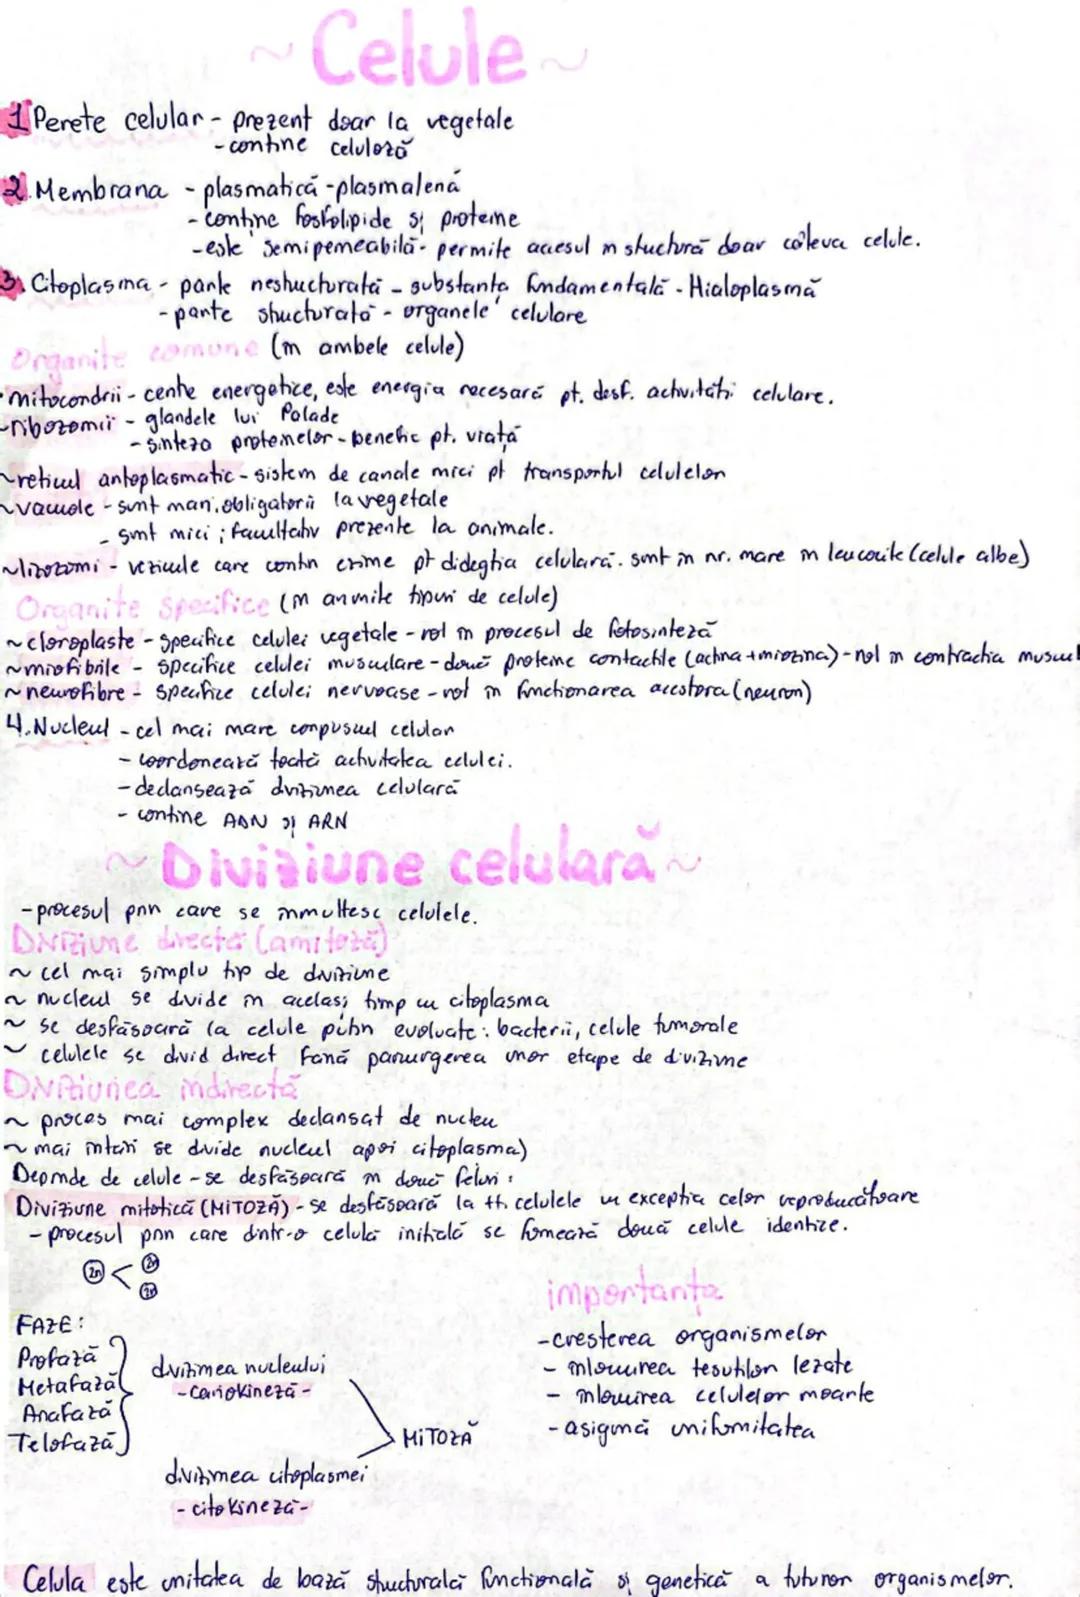 ~ Celule ~
1 Perete celular - prezent doar la vegetale
- contine celuloză
2. Membrana - plasmatică - plasmalenă
- contine fosfolipide și proteine
- este semipemeabilă - permite accesul în stuctură doar câteva celule.
3. Citoplasma - parte nestructurată - substanța fundamentală - Hialoplasmă
- parte structurată - organele celulare
Organite comune (în ambele celule)
mitocondrii - centre energetice, este energia necesară pt. desf. activității celulare.
- ribozomii - glandele lui Palade
- sinteza proteinelor - benefic pt. viață
~ reticul antoplasmatic - sistem de canale mici pt transportul celulelor
~ vacuole - sunt mari, obligatorii la vegetale
- sunt mici ; facultativ prezente la animale.
~ lizozomi - vezicule care contin ezime pt didegtia celulară. sunt în nr. mare în leucocite (celule albe)
Organite specifice (în anumite tipuri de celule)
~ cloroplaste - specifice celulei vegetale - rol în procesul de fotosinteză
~ miofibrile - specifice celulei musculare - două proteine contactile (actina + miozina) - rol în contractia muscul
~ neurofibre - specifice celulei nervoase - rol în functionarea acestora (neuron)
4. Nucleul - cel mai mare corpuscul celular
- coordonează toată activitatea celulei.
- declansează diviziunea celulară
- contine ADN și ARN
~ Diviziune celulară ~
- procesul prin care se inmultesc celulele.
Diviziune directă (amitoză)
~ cel mai simplu tip de diviziune
~ nucleul se divide în acelasi timp cu citoplasma
~ se desfăsoară la celule putin evoluate : bacterii, celule tumorale
~ celulele se divid direct fană parcurgerea unor etape de diviziune
Diviziunea indirectă
~ proces mai complex declansat de nucleu
~ mai intâi se divide nucleul apoi citoplasma)
Depinde de celule - se desfăsoară în două feluri :
Diviziune mitotică (MITOZĂ) - se desfăsoară la tt. celulele cu exceptia celor reproducătoare
- procesul prin care dintr-o celulă initială se fomează două celule identice.
2n < 2n
2n
importanta
FAZE :
- cresterea organismelor
Profază
- inlocuirea tesutilor lezate
Metafază
- inlocuirea celulelor moarte
Anafază
- asigură unifomitatea
Telofază
diviziunea nucleului
- cariokineză -
MITOZĂ
diviziunea citoplasmei
- citokineză -
Celula este unitatea de bază structurală functională și genetică a tuturor organismelor.